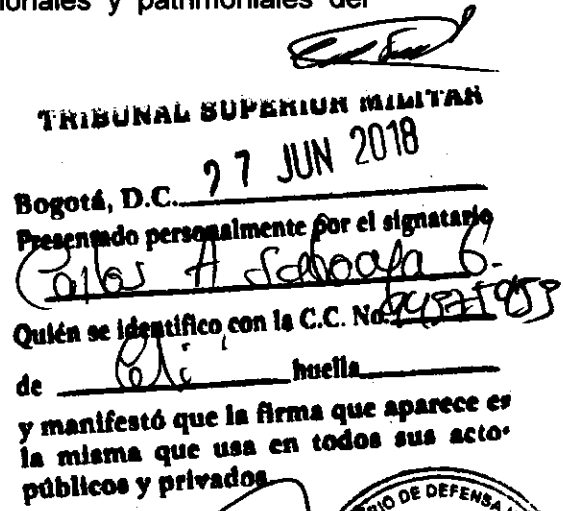 y patrimoniales del
TRIBUNAL SUPERIOR MILITAR
27 JUN 2018
Bogotá, D.C.
Presentado personalmente por el signatario
Carlos A
Quién se identifico con la C.C. No.
de Cali huella
y manifestó que la firma que aparece es
la misma que usa en todos sus acto
públicos y privados
RIO DE DEFENSA